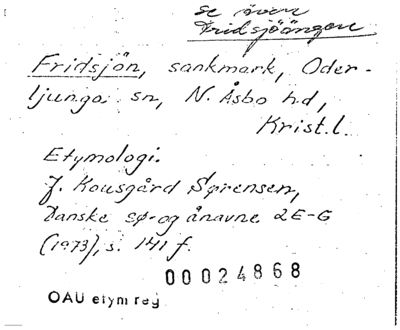 se även
Fridsjöängen
Fridsjön, sankmark, Oder-
ljunga sn, N. Åsbo hd,
Krist. l.
Etymologi.
J. Kousgård Sørensen,
Danske sø- og ånavne 2E-G
(1973), s. 141 f.
00024868
OAU etym reg